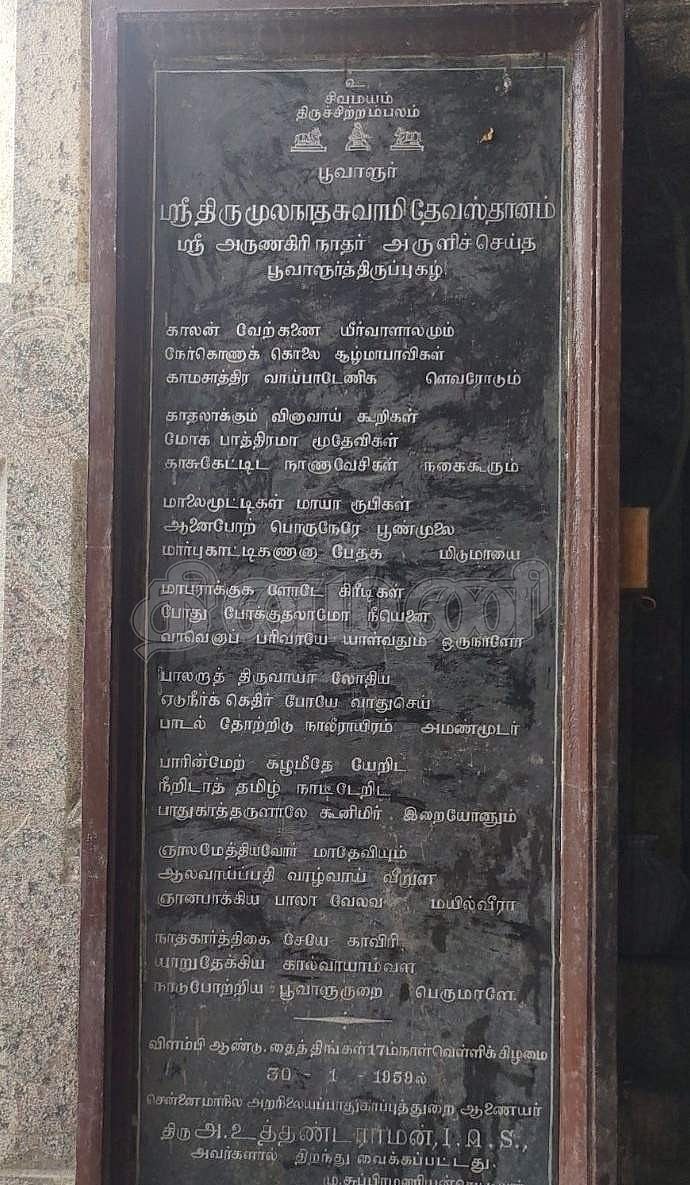 உ
சிவமயம்
திருச்சிற்றம்பலம்
பூவாளூர்
ஸ்ரீ திரு மூலநாதசுவாமி தேவஸ்தானம்
ஸ்ரீ அருணகிரி நாதர் அருளிச் செய்த
பூவாளூர்த்திருப்புகழ்
காலன் வேற்கணை யீர்வாளாலமும்
நேர்கொணாக் கொலை சூழ்மாபாவிகள்
காமசாத்திர வாய்பாடேணிக ளெவரோடும்
காதலாக்கும் வினாவாய் கூறிகள்
மோக பாத்திரமா மூதேவிகள்
காசுகேட்டிட நாணாவேசிகள் நகைகூரும்
மாலைமூட்டிகள் மாயா ரூபிகள்
ஆனைபோற் பொருநேரே பூண்முலை
மார்புகாட்டிகணானா பேதக மிடுமாயை
மாபராக்குக ளோடே கிரீடிகள்
போது போக்குதலாமோ நீயெனை
வாவெனாப் பரிவாயே யாள்வதும் ஒருநாளோ
பாலறாத் திருவாயா லோதிய
ஏடுநீர்க் கெதிர் போயே வாதுசெய்
பாடல் தோற்றிடு நாலீராயிரம் அமணமூடர்
பாரின்மேற் கழுமீதே யேறிட
நீறிடாத் தமிழ் நாட்டேறிட
பாதுகாத்தருளாலே கூனிமிர் இறையோனும்
ஞாலமேத்தியவோர் மாதேவியும்
ஆலவாய்ப்பதி வாழ்வாய் வீறுள
ஞானபாக்கிய பாலா வேலவ மயில்வீரா
நாதகார்த்திகை சேயே காவிரி
யாறுதேக்கிய கால்வாயாம்வள
நாடுபோற்றிய பூவாளுருறை பெருமாளே.
விளம்பி ஆண்டு, தைத் திங்கள் 17ம்நாள் வெள்ளிக்கிழமை
30 - 1 - 1959ல்
சென்னை மாநில அறநிலையப்பாதுகாப்புத்துறை ஆணையர்
திரு அ. உத்தண்டராமன், I. A. S.,
அவர்களால் திறந்து வைக்கப்பட்டது.
மு. சுப்பிரமணியன்
தினமணி